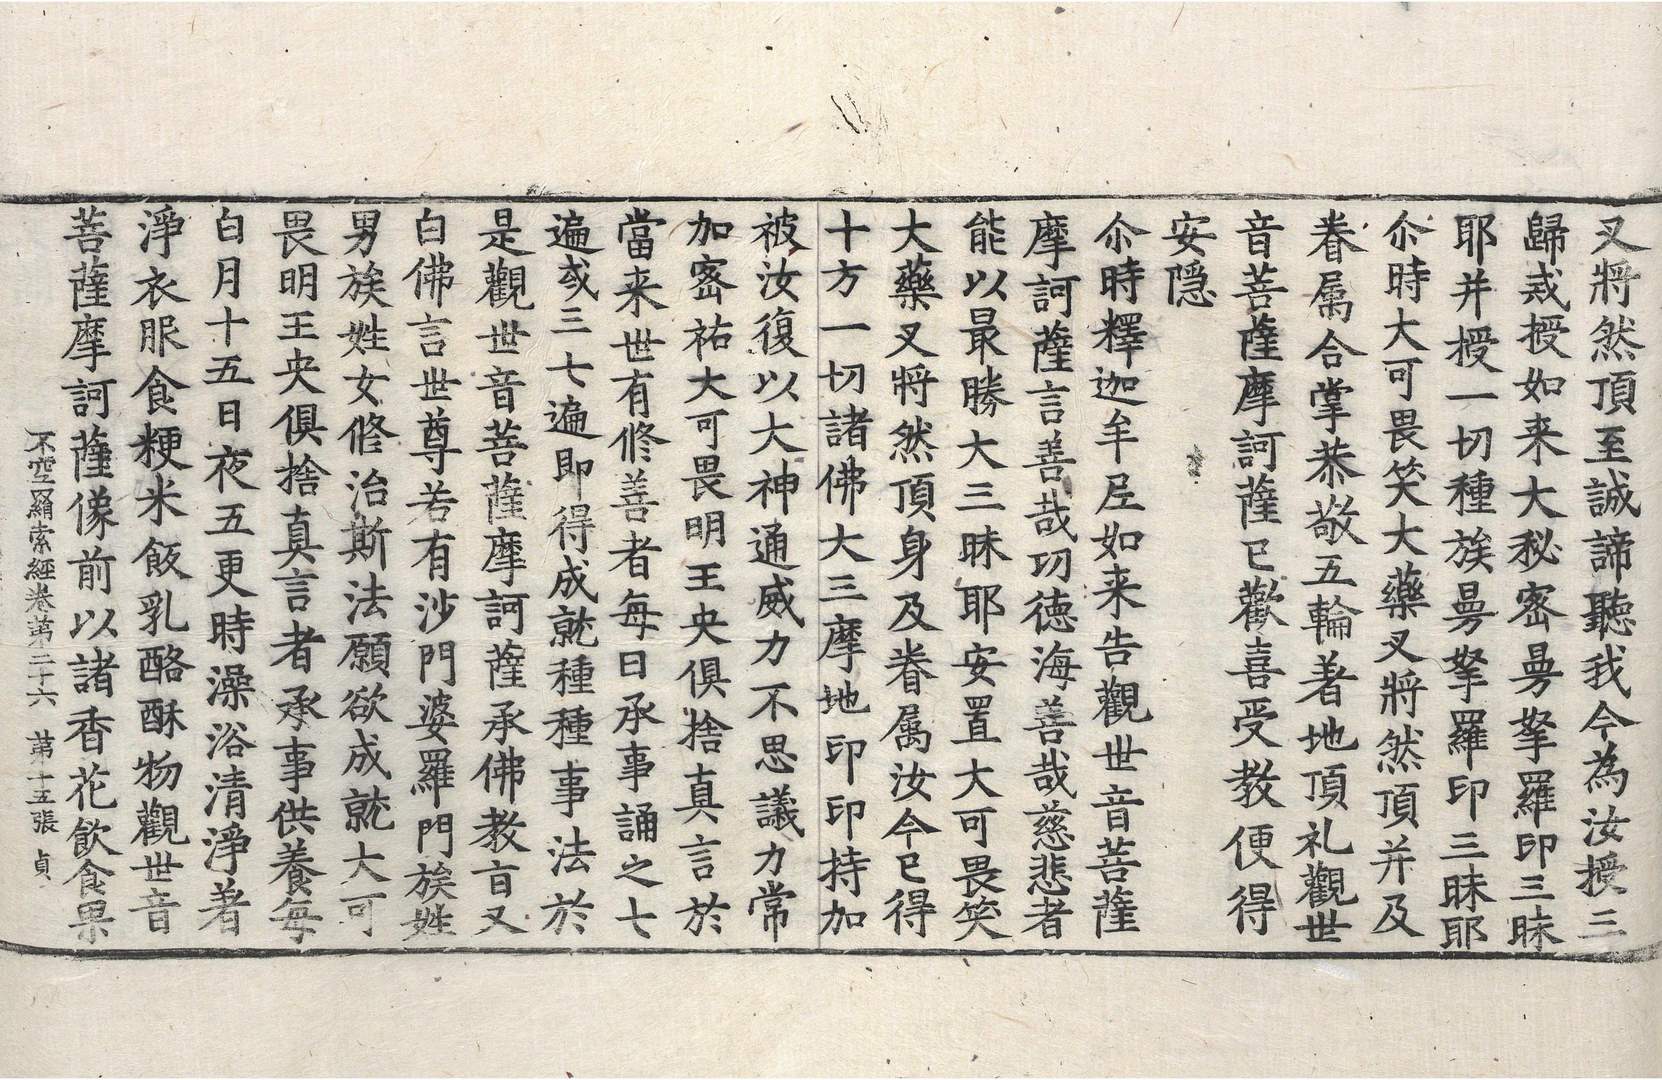 叉將然頂至誠諦聽我今為汝授三
歸戒授如来大秘密曼拏羅印三昧
耶并授一切種族曼拏羅印三昧耶
尒時大可畏笑大藥叉將然頂并及
眷属合掌恭敬五輪著地頂礼觀世
音菩薩摩訶薩已歡喜受教便得
安隱
尒時釋迦牟尼如来告觀世音菩薩
摩訶薩言善哉㓛德海善哉慈悲者
能以最勝大三昧耶安置大可畏笑
大藥叉將然頂身及眷属汝今已得
十方一切諸佛大三摩地印印持加
被汝復以大神通威力不思議力常
加密祐大可畏明王央俱捨真言於
當来世有修善者每日承事誦之七
遍或三七遍即得成就種種事法於
是觀世音菩薩摩訶薩承佛教旨又
白佛言世尊若有沙門婆羅門族姓
男族姓女修治斯法願欲成就大可
畏明王央俱捨真言者承事供養每
白月十五日夜五更時澡浴清淨著
淨衣服食粳米飯乳酪酥物觀世音
菩薩摩訶薩像前以諸香花飲食果
不空羂索經卷第二十六　第十五張　貞